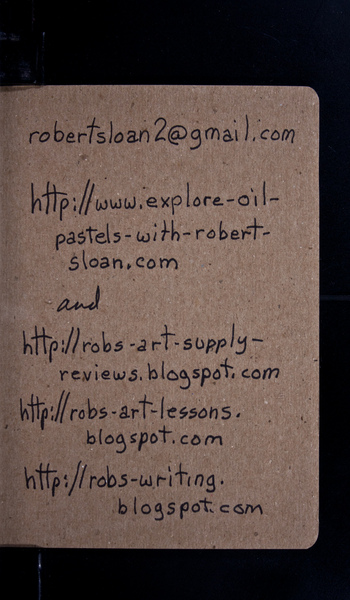 robertsloan2@gmail.com
http://www.explore-oil-
pastels-with-robert-
sloan.com
and
http://robs-art-supply-
reviews.blogspot.com
http://robs-art-lessons.
blogspot.com
http://robs-writing.
blogspot.com